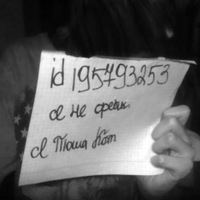 id195793253
я не фейк.
я Тоша Кот